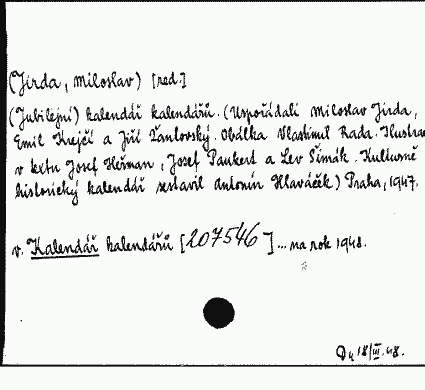 (Jirda, Miloslav) [red.]
(Jubilejní) kalendář kalendářů. (Uspořádali Miloslav Jirda,
Emil Krejčí a Jiří Žantovský. Obálka Vlastimil Rada. Ilustrac
v textu Josef Heřman, Josef Paukert a Lev Šimák. Kulturně
historický kalendář sestavil Antonín Hlaváček) Praha, 1947.
v. Kalendář kalendářů [207546] ... na rok 1948.
18/III.48.